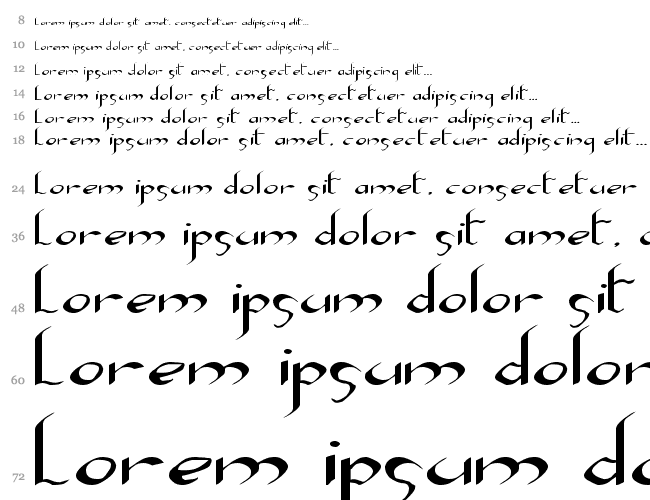 8 Lorem ipsum dolor sit amet, consectetuer adipiscing elit...
10 Lorem ipsum dolor sit amet, consectetuer adipiscing elit...
12 Lorem ipsum dolor sit amet, consectetuer adipiscing elit...
14 Lorem ipsum dolor sit amet, consectetuer adipiscing elit...
16 Lorem ipsum dolor sit amet, consectetuer adipiscing elit...
18 Lorem ipsum dolor sit amet, consectetuer adipiscing elit...
24 Lorem ipsum dolor sit amet, consectetuer
36 Lorem ipsum dolor sit amet, c
48 Lorem ipsum dolor sit
60 Lorem ipsum dolor
72 Lorem ipsum do